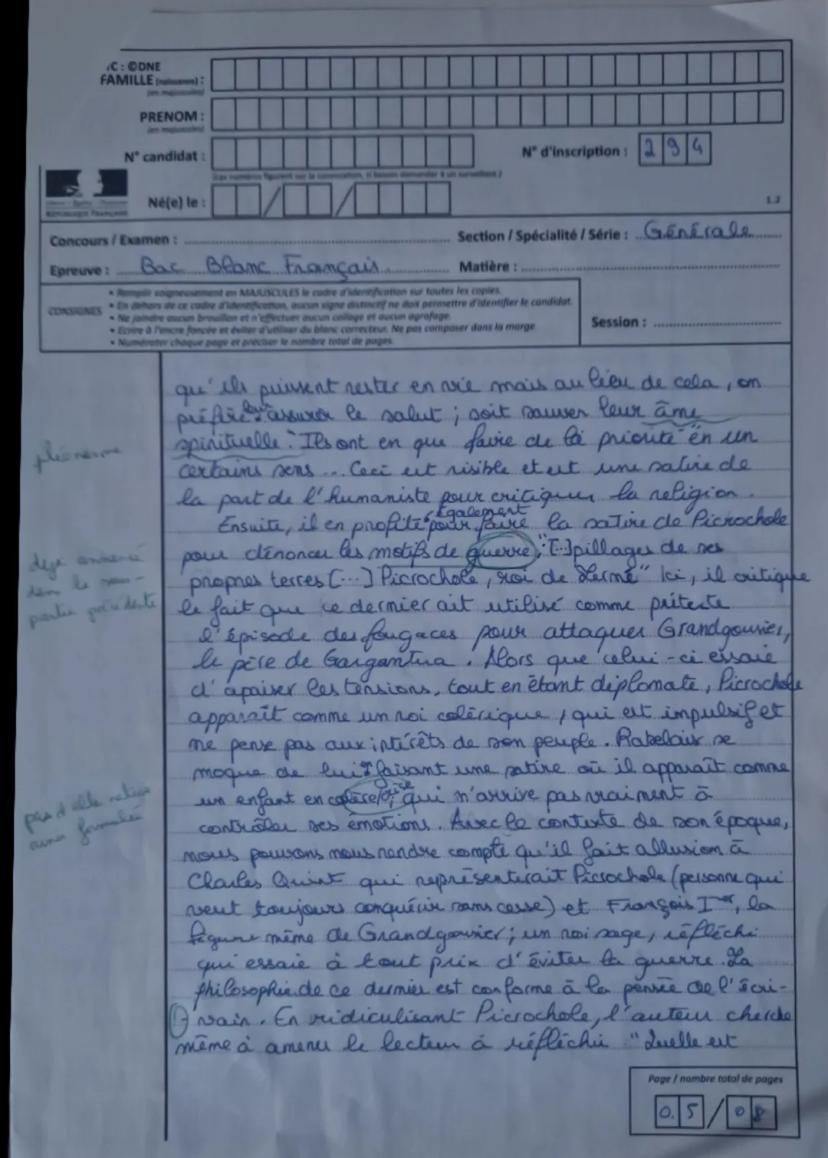 C : ©DNE
FAMILLE (naissance) :
(en majuscules)
PRENOM :
(en majuscules)
N° candidat :
N° d'inscription : 2 9 4
(Les numéros figurent sur la convocation, si besoin demander à un surveillant)
Né(e) le : / /
RÉPUBLIQUE FRANÇAISE
1.2
Concours / Examen :
Section / Spécialité / Série : Générale
Epreuve : Bac Blanc Français
Matière :
CONSIGNES
• Remplir soigneusement en MAJUSCULES le cadre d'identification sur toutes les copies.
• En dehors de ce cadre d'identification, aucun signe distinctif ne doit permettre d'identifier le candidat.
• Ne joindre aucun brouillon et n'effectuer aucun collage et aucun agrafage.
• Ecrire à l'encre foncée et éviter d'utiliser du blanc correcteur. Ne pas composer dans la marge.
• Numéroter chaque page et préciser le nombre total de pages.
Session :
qu'ils puissent rester en vie mais au lieu de cela, on
préfère leur assurer le salut ; soit sauver leur âme
spirituelle. Ils ont en que faire de la priorité en un
pléonasme
certains sens... Ceci est risible et est une satire de
la part de l'humaniste pour critiquer la religion.
Ensuite, il en profite également pour faire la satire de Picrochole
pour dénoncer les motifs de guerre, "[..] pillages de ses
déjà annoncé
dans la sous-
partie précédente
propres terres [...] Picrochole, roi de Lerné" Ici, il critique
le fait que ce dernier ait utilisé comme prétexte
l'épisode des fougaces pour attaquer Grandgousier,
le père de Gargantua. Alors que celui-ci essaie
d'apaiser les tensions, tout en étant diplomate, Picrochole
apparaît comme un roi colérique, qui est impulsif et
ne pense pas aux intérêts de son peuple. Rabelais se
moque de lui faisant une satire où il apparaît comme
un enfant en colère, qui n'arrive pas vraiment à
contrôler ses émotions. Avec le contexte de son époque,
nous pouvons nous rendre compte qu'il fait allusion à
Charles Quint qui représenterait Picrochole (personne qui
veut toujours conquérir sans cesse) et François Ier, la
figure même de Grandgousier ; un roi sage, réfléchi
qui essaie à tout prix d'éviter la guerre. La
philosophie de ce dernier est conforme à la pensée de l'écri-
vain. En ridiculisant Picrochole, l'auteur cherche
même à amener le lecteur à réfléchir "Quelle est
Page / nombre total de pages
0.5 / 08